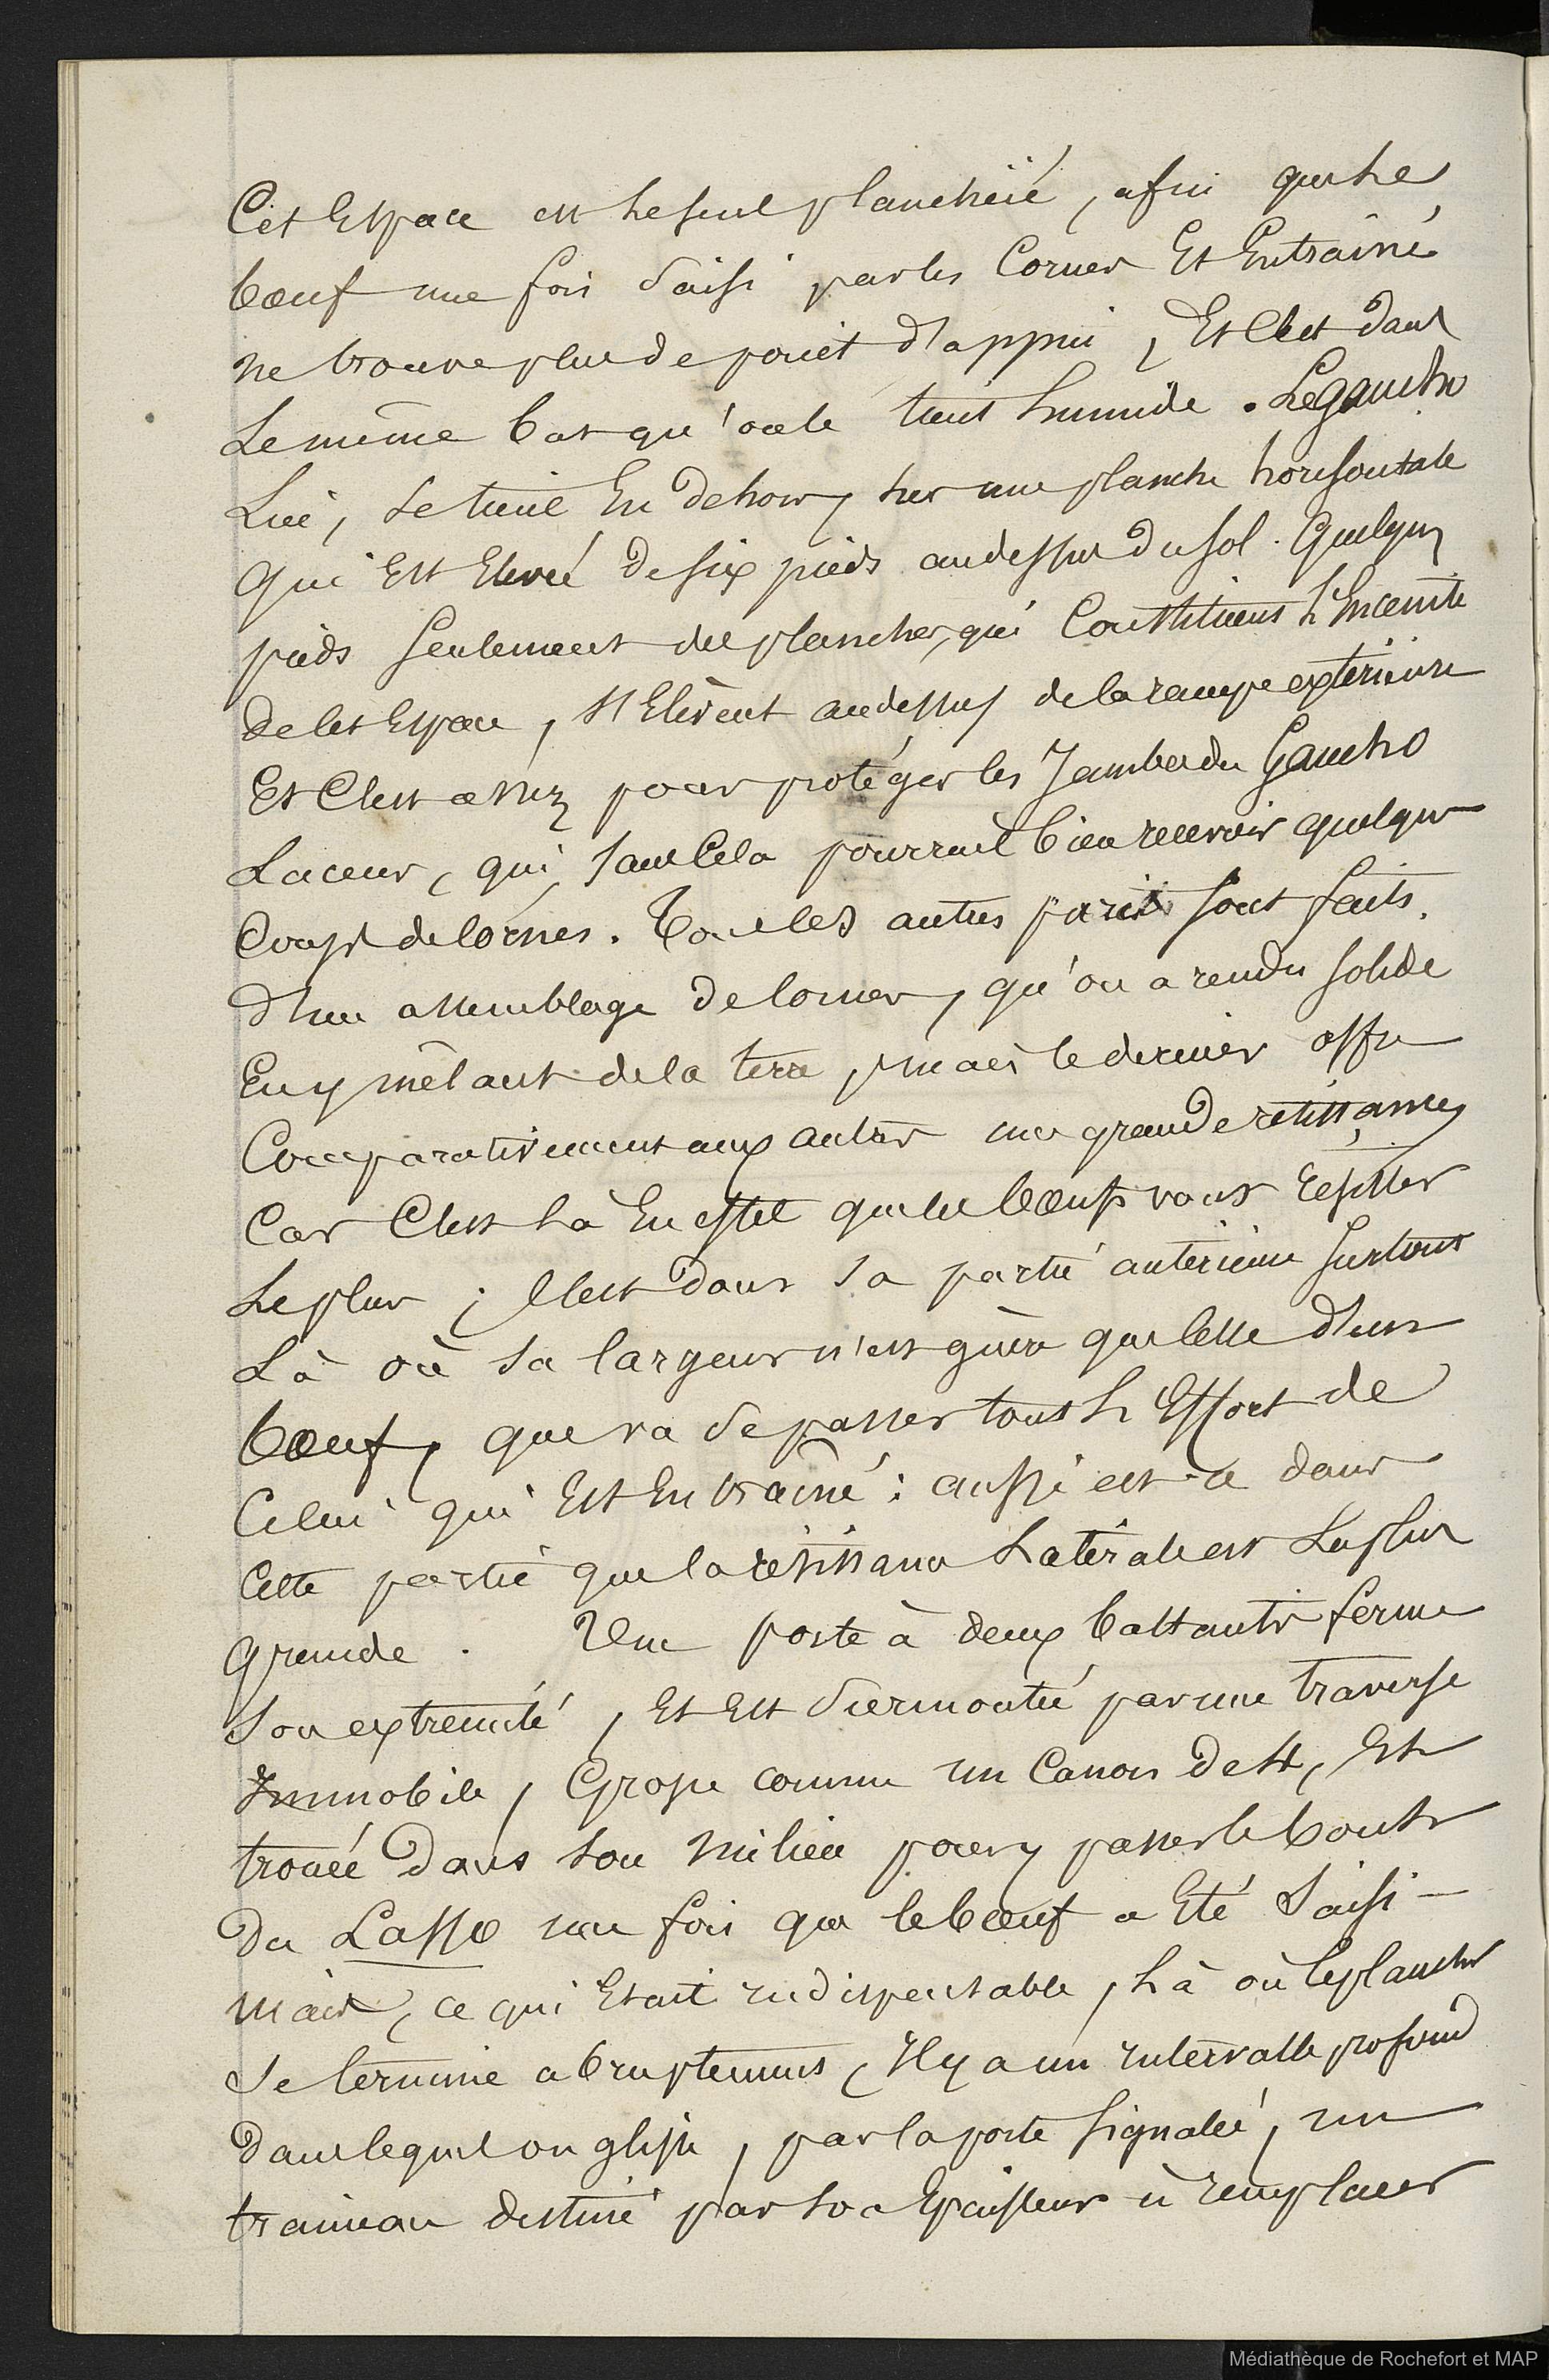 Cet Espace est le seul planchéié, afin que le
bœuf une fois saisi par les Cornes Et Entraîné
ne trouve plus de point d'appui, Et C'est dans
Le même but qu'on le tient humide. Le gaucho
Lui, se tient En dehors, sur une planche horisontale
Qui Est Elevée de six pieds audessus du sol. Quelques
pieds seulement des planches, qui Constituent l'Enceinte
de Cet Espace, s'Elèvent audessus de la rampe extérieure
Et C'est assez pour protéger les Jambes du Gaucho
Laceur, qui, sans Cela pourrait bien recevoir quelques
Coups de Cornes. Tous les autres parcs sont faits
d'un assemblage de Cornes, qu'on a rendu solide
En y mêlant de la terre, mais le dernier offre
Comparativement aux autres une grande résistance,
Car C'est là En effet que les bœufs vont résister
Le plus; C'est dans sa partie antérieure surtout
Là où sa largeur n'est guère que Celle d'un
bœuf, que va se passer tout l'Effort de
Celui qui Est Entraîné : aussi est-ce dans
Cette partie que la résistance Latérale est La plus
grande. Une porte à deux battants ferme
Son extremité, Et Est surmontée par une traverse
Immobile, Grosse comme un Canon de 4, Et
trouée dans son milieu pour y passer le bout
Du Lasso une fois que le bœuf a Eté Saisi –
mais, ce qui Etait indispensable, là où le plancher
Se termine abruptement, Il y a un intervalle profond
Dans lequel on glisse, par la porte signalée, un
traineau destiné par son Epaisseur à remplacer
Médiathèque de Rochefort et MAP